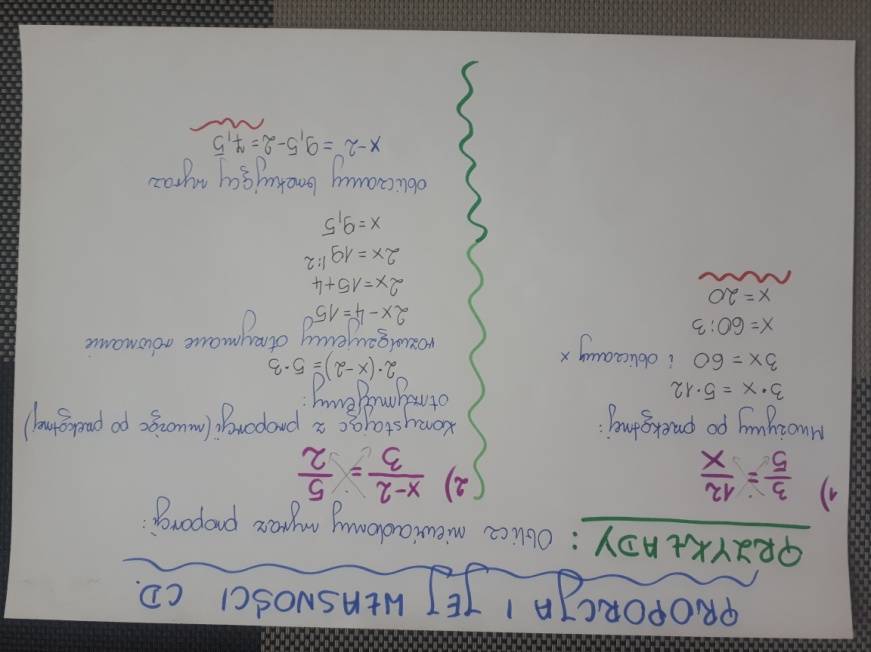 PROPORCJA I JEJ WŁASNOŚCI CD.
PRZYKŁADY: Oblicz niewiadomy wyraz proporcji:
1) 3/5 = 12/x
Mnożymy po przekątnej:
3·x = 5·12
3x = 60 i obliczamy x
x = 60:3
x = 20
2) x-2/3 = 5/2
Korzystając z proporcji (mnożąc po przekątnej)
otrzymujemy:
2·(x-2) = 5·3
rozwiązujemy otrzymane równanie
2x-4=15
2x=15+4
2x=19 |:2
x=9,5
obliczamy brakujący wyraz
x-2 = 9,5-2=7,5